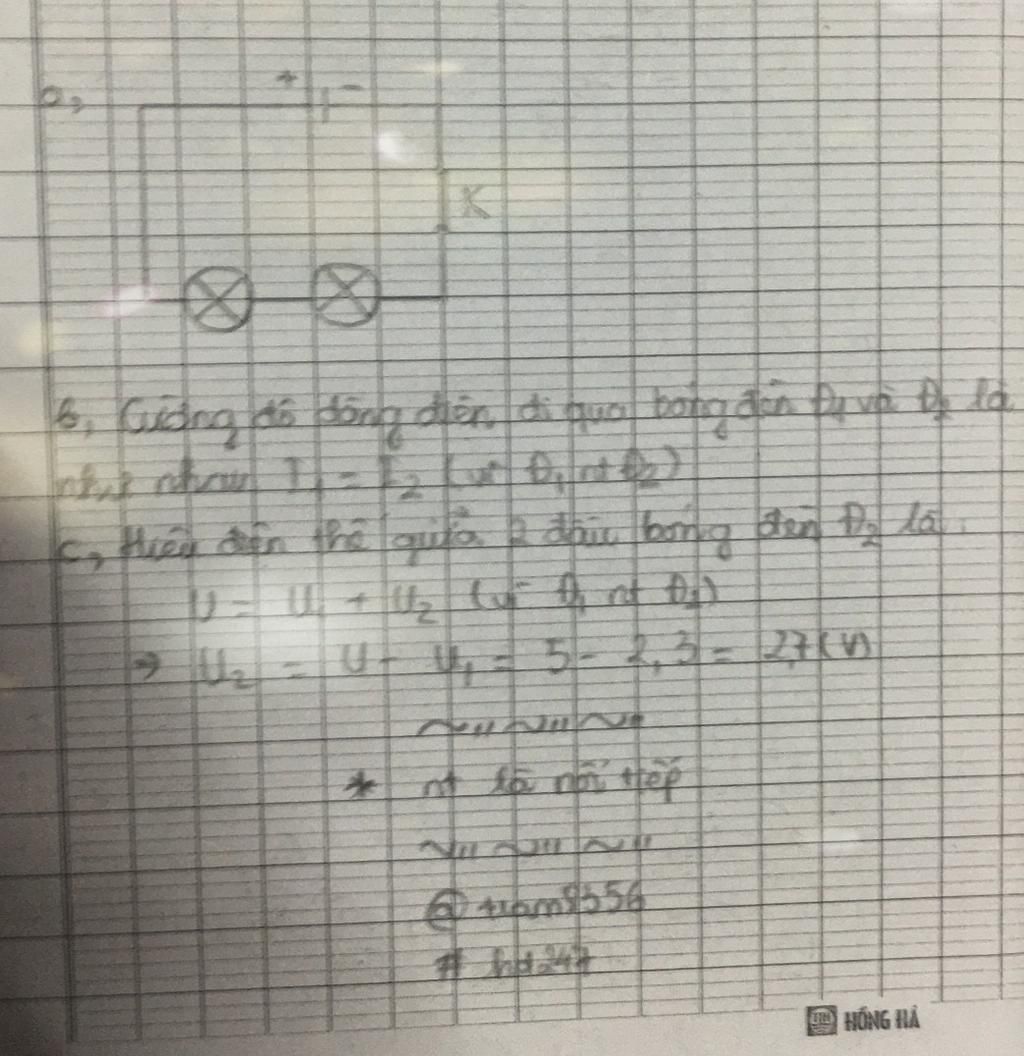 a,
+ -
K
b, Cường độ dòng điện đi qua bóng đèn Đ1 và Đ2 là
như nhau I1 = I2 (vì Đ1 nt Đ2)
c, Hiệu điện thế giữa 2 đầu bóng đèn Đ2 là
U = U1 + U2 (vì Đ1 nt Đ2)
=> U2 = U - U1 = 5 - 2,3 = 2,7 (V)
* nt là nối tiếp
# hd247
HỒNG HÀ